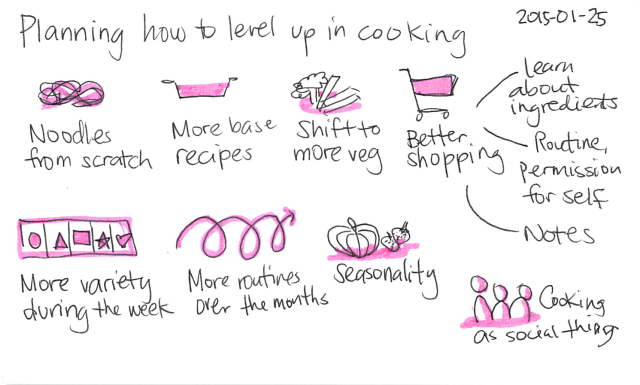 Planning how to level up in cooking
2015-01-25
Noodles
from scratch
More base
recipes
Shift to
more veg
Better
shopping
Learn
about
ingredients
Routine,
permission
for self
Notes
More variety
during the week
More routines
over the months
Seasonality
Cooking
as social thing